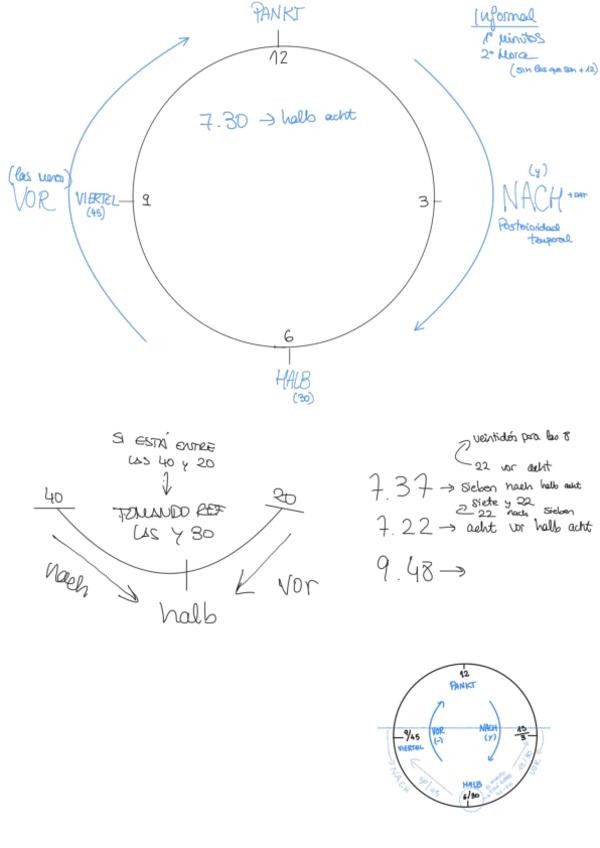 PANKT
12
Informal
1º Minutos
2º Hora
(sin las que son +12)
7.30 → halb acht
(las menos)
VOR
VIERTEL
(45)
9
3
(y)
NACH + DAT
Posterioridad
temporal
6
HALB
(30)
SI ESTÁ ENTRE
LAS 40 y 20
TOMANDO REF
LAS Y 30
40
20
nach
vor
halb
veintidós para las 8
22 vor acht
7.37 → sieben nach halb acht
siete y 22
22 nach sieben
7.22 → acht vor halb acht
9.48 →
12
PANKT
9/45
VIERTEL
VOR
(-)
NACH
(y)
15
3
NACH
VOR
HALB
6/30